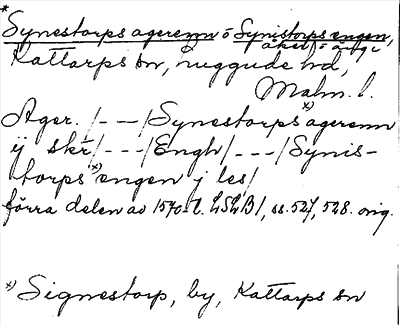 * Synestorps agerenn o Synistorps engen,
åker o äng i
Kattarps sn, Luggude hd,
Malm. l.
Ager. /---/ Synestorps x) agerenn
ij skr/---/Engh/---/Synis-
torps x) engen j les/
förra delen av 1570-t. LSLB/, ss. 527, 528. orig.
x) Signestorp, by, Kattarps sn